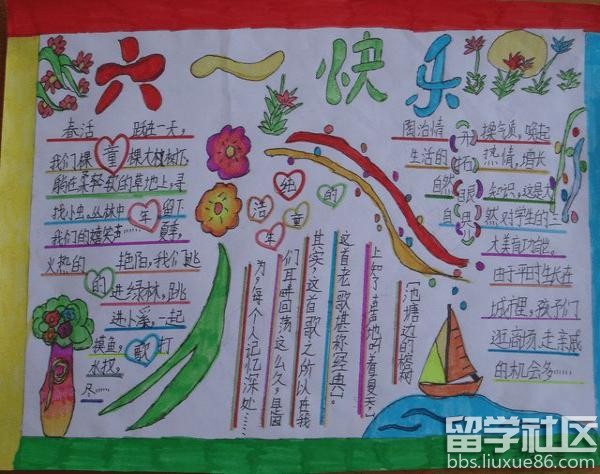 六一快乐
春活 跃在一天,
我们棵童棵大树树下
躺在柔轻软的草地上,寻
找小虫,丛林中年留下
我们的嬉笑声…… 夏季,
火热的 艳阳,我们
的进绿林,跳
进小溪,一起
摸鱼,歌打
水仗,
尽……
给童年洁的
[池塘边的榕树
上知了声声地叫着夏天,]
这首老歌堪称经典]。
其实,这首歌之所以在我
们耳畔回荡这么久,是因
为,每个人记忆深处……
陶冶情 操气质,唤起
生活的 热情,增长
自然 知识,这是大
自 然对学生的
开拓眼界
大美育功能。
由于平时生长在
城市里,孩子们
逛商场,走亲戚
的机会多……
留学社区
bbs.liuxue86.com